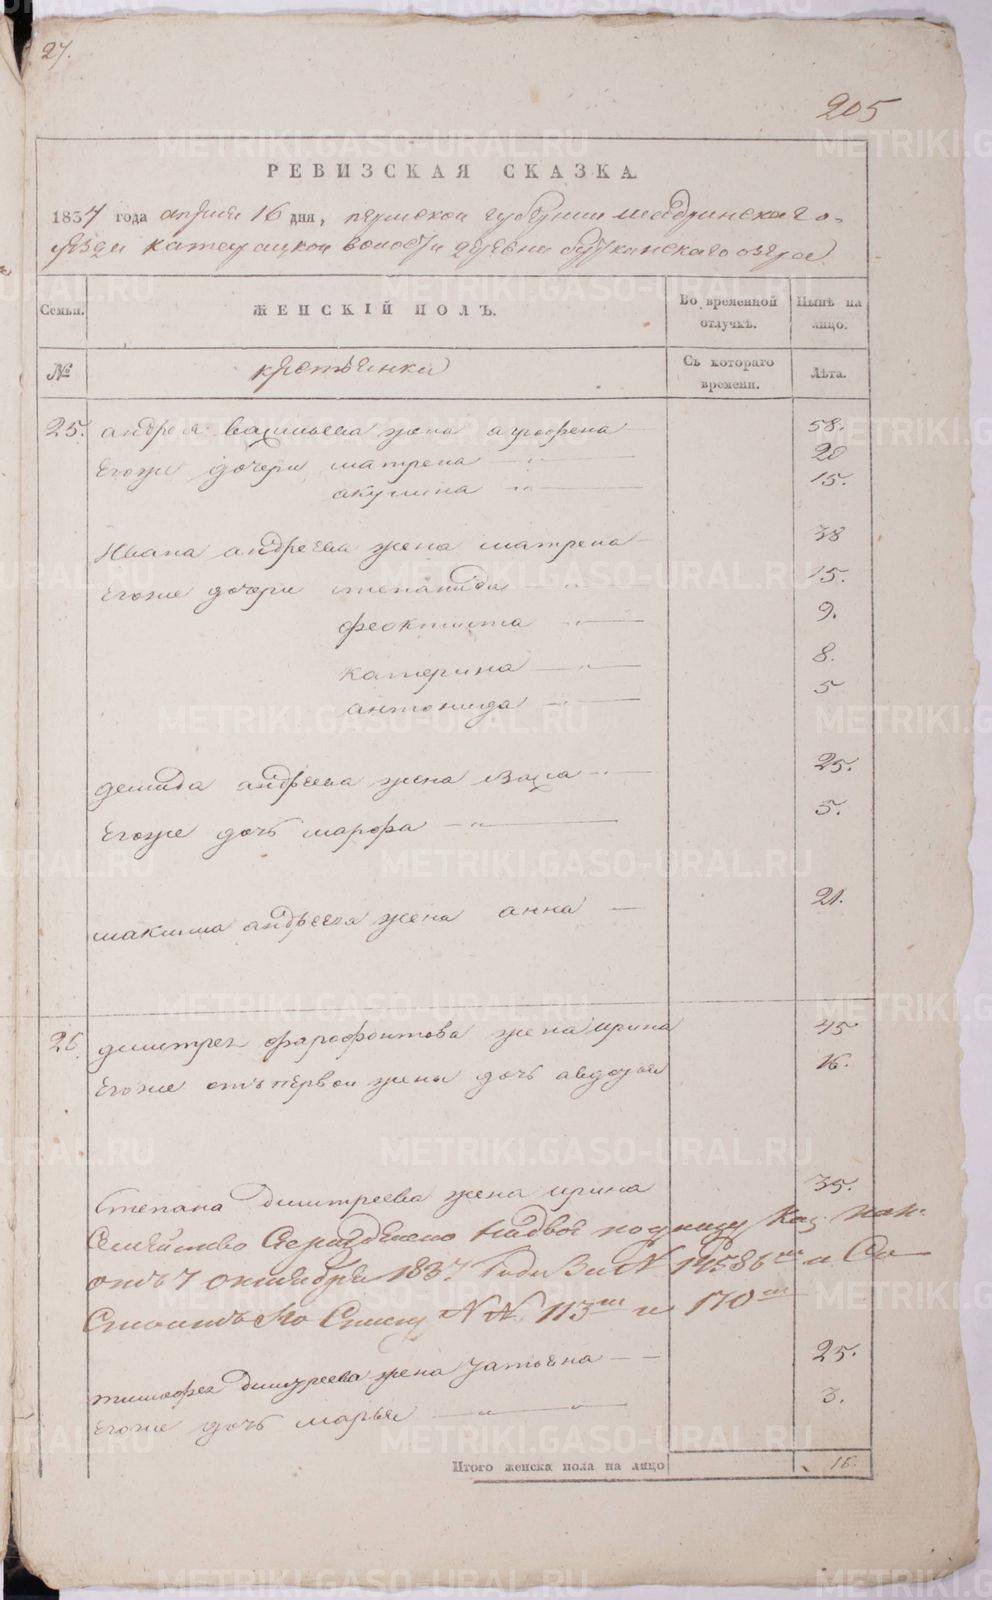 27.
205
РЕВИЗСКАЯ СКАЗКА.
1834 года апреля 16 дня, пермской губернии шадринскаго
уезда катайцкой волости деревни озера
Семьи. ЖЕНСКІЙ ПОЛЪ. Во временной отлучкѣ. Нынѣ на лицо.
№ крестьянки Съ котораго времени. Лѣта.
25. андрея васильева жена агрофена 58.
Егоже дочери матрена 20
акулина 15.
Ивана андреева жена матрена 38
Егоже дочери степанида 15.
феоктиста 9.
катерина 8.
антонида 5
демида андреева жена 25.
Егоже дочь марфа 5.
максима андреева жена анна 21.
26. димитрея фарофонтова жена ирина 45
Егоже отъ первой жены дочь авдотья 16.
Степана димитреева жена ирина 35.
Семейство надвое по указу Каз. пал.
отъ 7 октября 1837 Года За № 14586 и
Списку №№ 113 и 170
тимофея димитреева жена татьяна 25.
Егоже дочь марья 3.
Итого женска пола на лицо 16.
METRIKI.GASO-URAL.RU